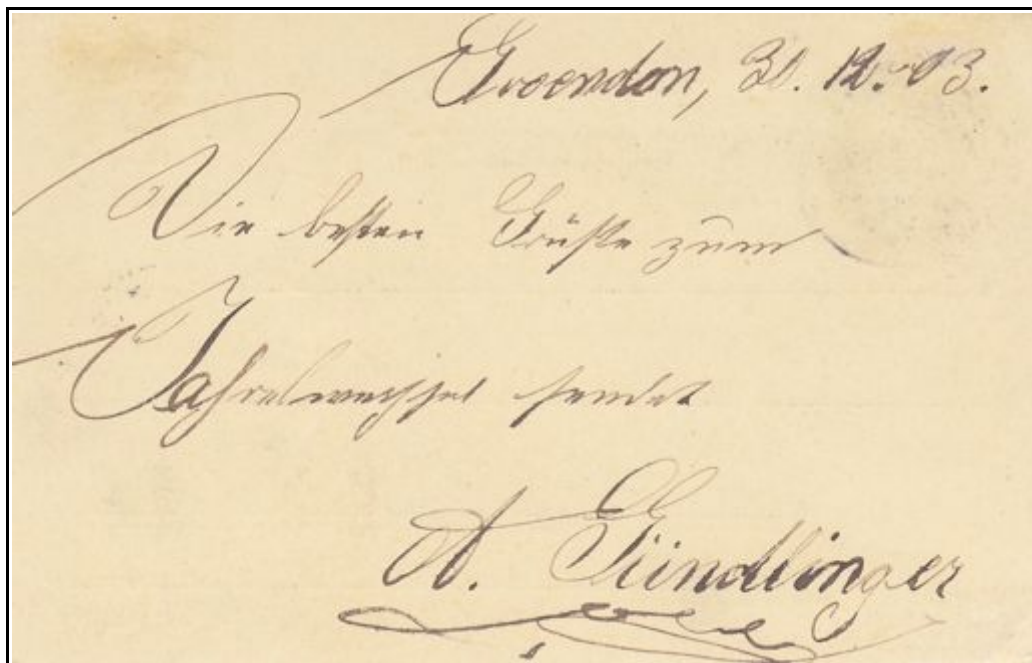 Groendorn, 31. 12. 03.
Die besten Grüße zum
Jahreswechsel sendet
A. Gündlinger